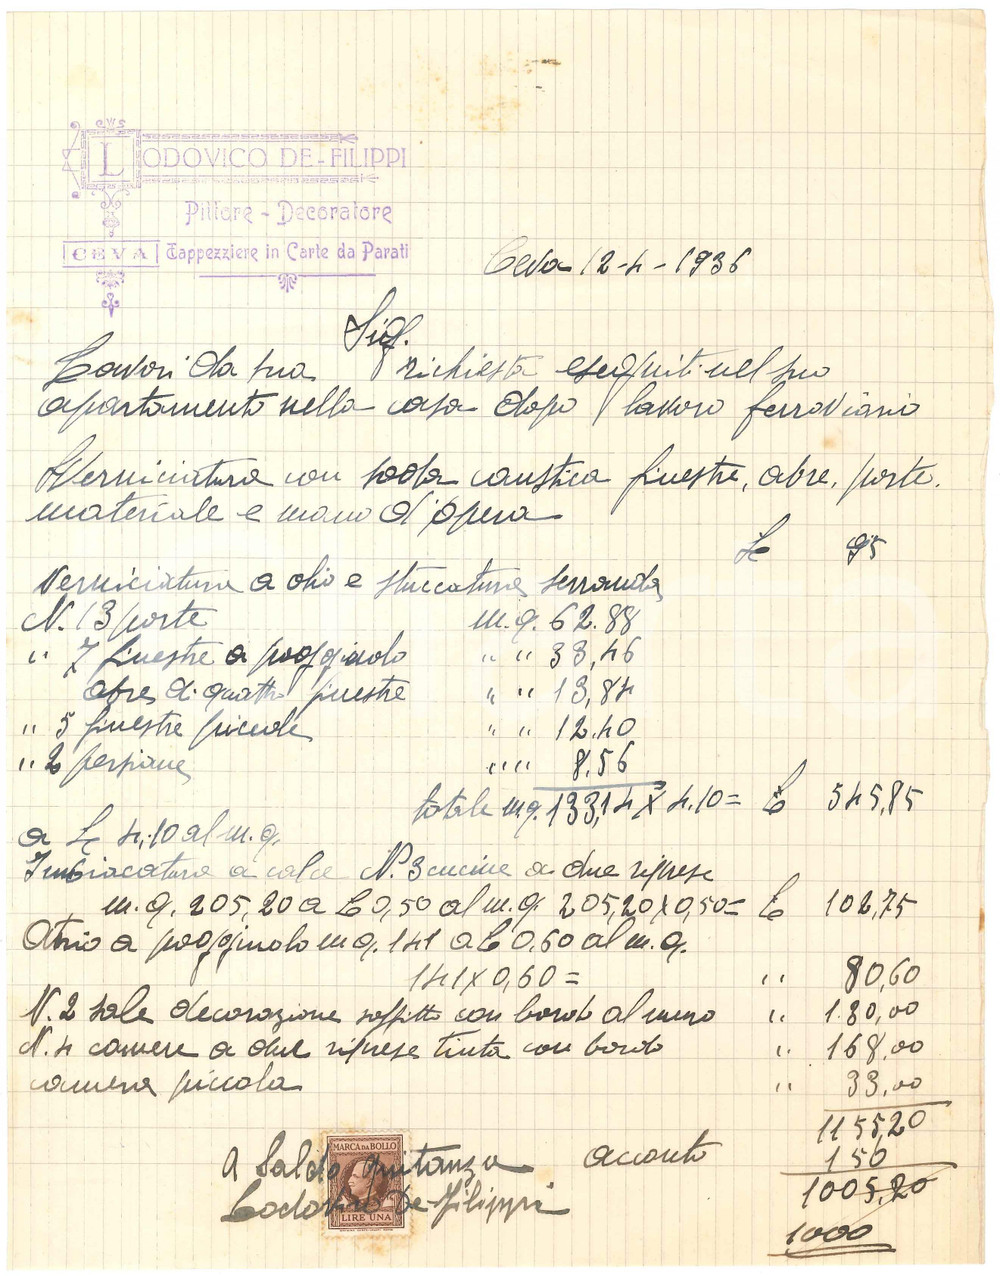 LODOVICO DE-FILIPPI
Pittore - Decoratore
CEVA Tappezziere in Carte da Parati
Ceva 12-4-1936
Sig.
Lavori da sua richiesta eseguiti nel suo
apartamento nella casa dopo lavoro ferroviario
Verniciatura con soda caustica finestre, abre, porte,
materiale e mano d'opera
£ 95
Verniciatura a olio e stuccatura serramta
N. 13 porte m.q. 62.88
" 7 finestre a poggiuolo " " 33,46
abre di quattro finestre " " 13,84
" 5 finestre piccole " " 12.40
" 2 persiane " " 8,56
totale m.q. 133,14 x 4.10 = £ 545,85
a £ 4,10 al m.q.
Imbiacatura a calce N. 3 cucine a due riprese
m.q. 205,20 a £ 0,50 al m.q. 205,20 x 0,50 = £ 102,75
Atrio a poggiuolo mq. 141 a £ 0.60 al m.q.
141 x 0,60 = " 80,60
N. 2 sale decorazione soffitto con bordo al muro " 130,00
N. 4 camere a due riprese tinta con bordo " 168,00
camera piccola " 33,00
1155,20
acconto 150
1005,20
1000
A Saldo quitanza
Lodovico De-Filippi
MARCA DA BOLLO
LIRE UNA